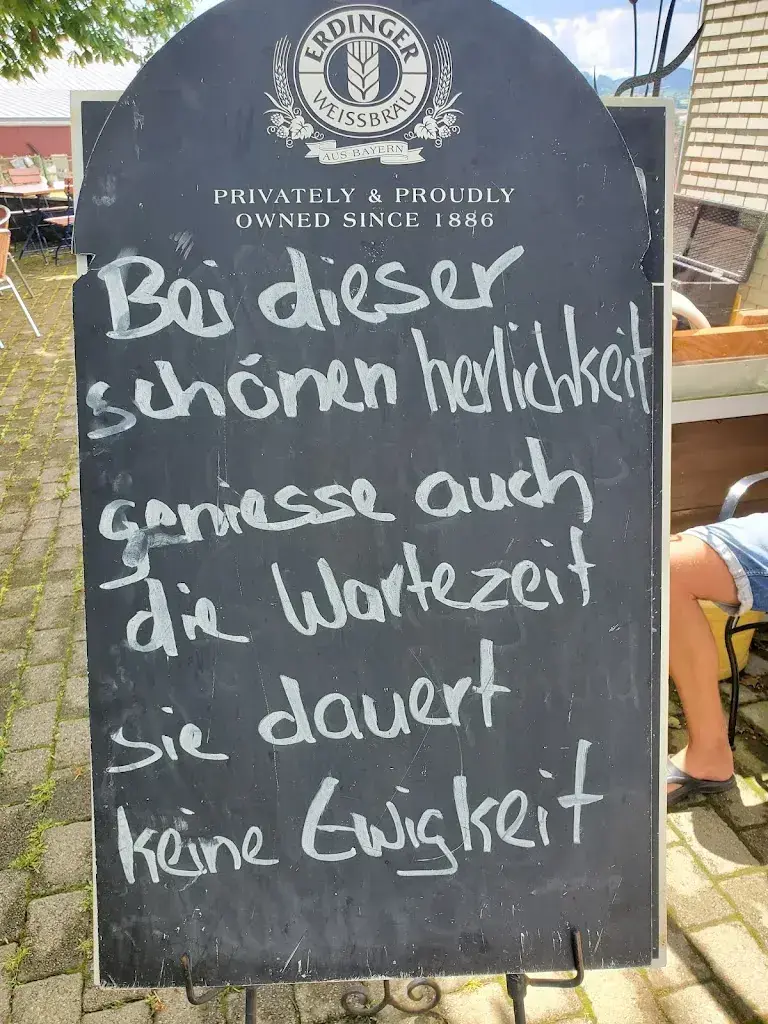 ERDINGER
WEISSBRÄU
AUS BAYERN
PRIVATELY & PROUDLY
OWNED SINCE 1886
Bei dieser
schönen herlichkeit
geniesse auch
die Wartezeit
sie dauert
keine Ewigkeit